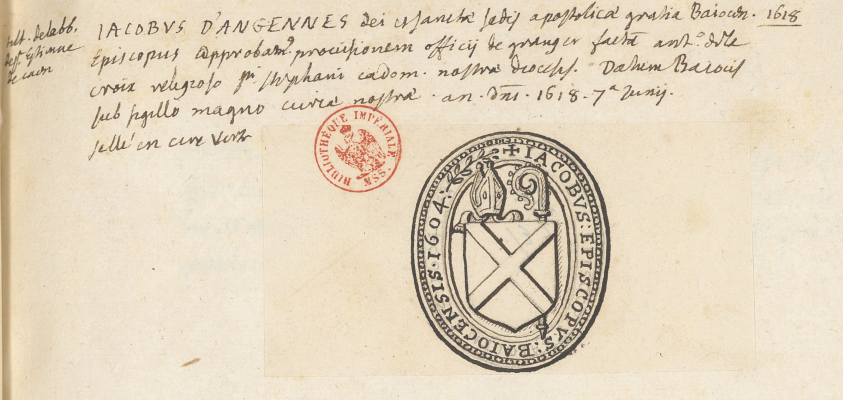 tilt. de labb.
de st Estienne
de caen
IACOBVS D'ANGENNES dei et sanctæ sedis apostolicæ gratia Baiocen. 1618
Episcopus approbam9 provisionem officij de granger factā ant.o de la
croix religioso sti stephani cadom. nostræ diocesis. Datum Baiocis
sub sigillo magno curiæ nostræ. an. dni. 1618. 7a Junij.
sellé en cire verte
BIBLIOTHÈQUE IMPÉRIALE MSS.
+ IACOBVS : EPISCOPVS : BAIOCENSIS · 1604 :